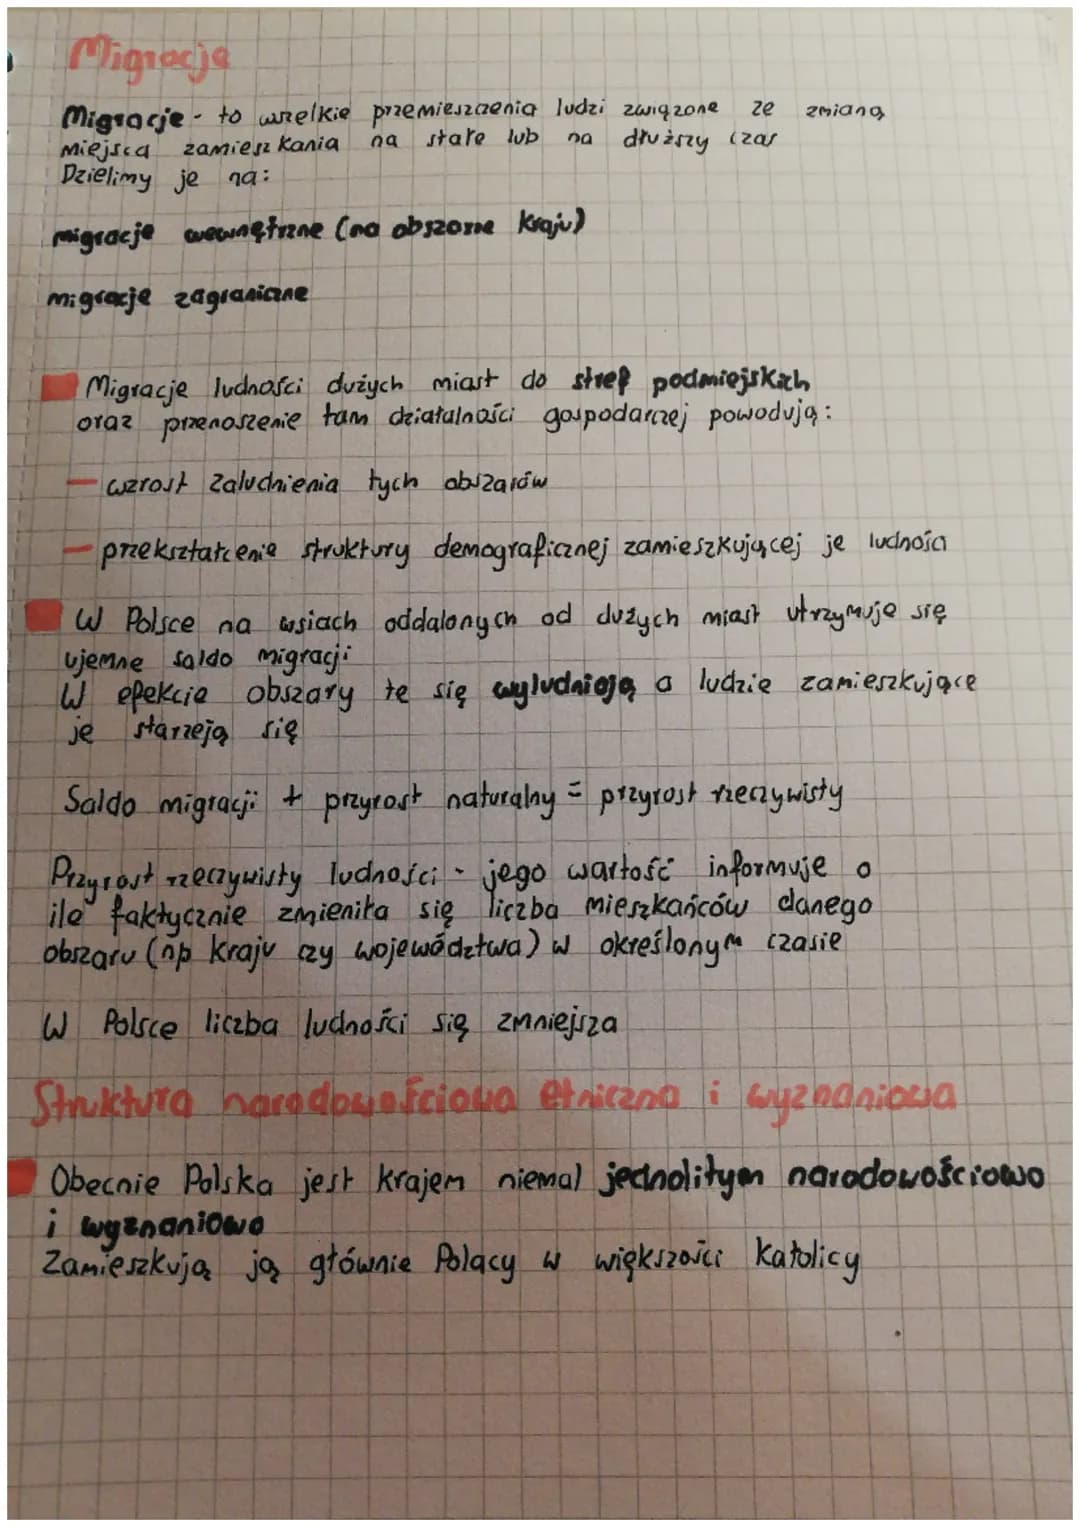 Migracje
Migracje - to wszelkie przemieszczenia ludzi związane ze zmianą
miejsca zamieszkania na stałe lub na dłuższy czas
Dzielimy je na:
migracje wewnętrzne (na obszarze kraju)
migracje zagraniczne
Migracje ludności dużych miast do stref podmiejskich
oraz przenoszenie tam działalności gospodarczej powodują:
- wzrost zaludnienia tych obszarów
- przekształcenie struktury demograficznej zamieszkującej je ludności
W Polsce na wsiach oddalonych od dużych miast utrzymuje się
ujemne saldo migracji
W efekcie obszary te się wyludniają a ludzie zamieszkujące
je starzeją się
Saldo migracji + przyrost naturalny = przyrost rzeczywisty
Przyrost rzeczywisty ludności - jego wartość informuje o
ile faktycznie zmieniła się liczba mieszkańców danego
obszaru (np kraju czy województwa) w określonym czasie
W Polsce liczba ludności się zmniejsza
Struktura narodowościowa etniczna i wyznaniowa
Obecnie Polska jest krajem niemal jednolitym narodowościowo
i wyznaniowo
Zamieszkują ją głównie Polacy w większości Katolicy